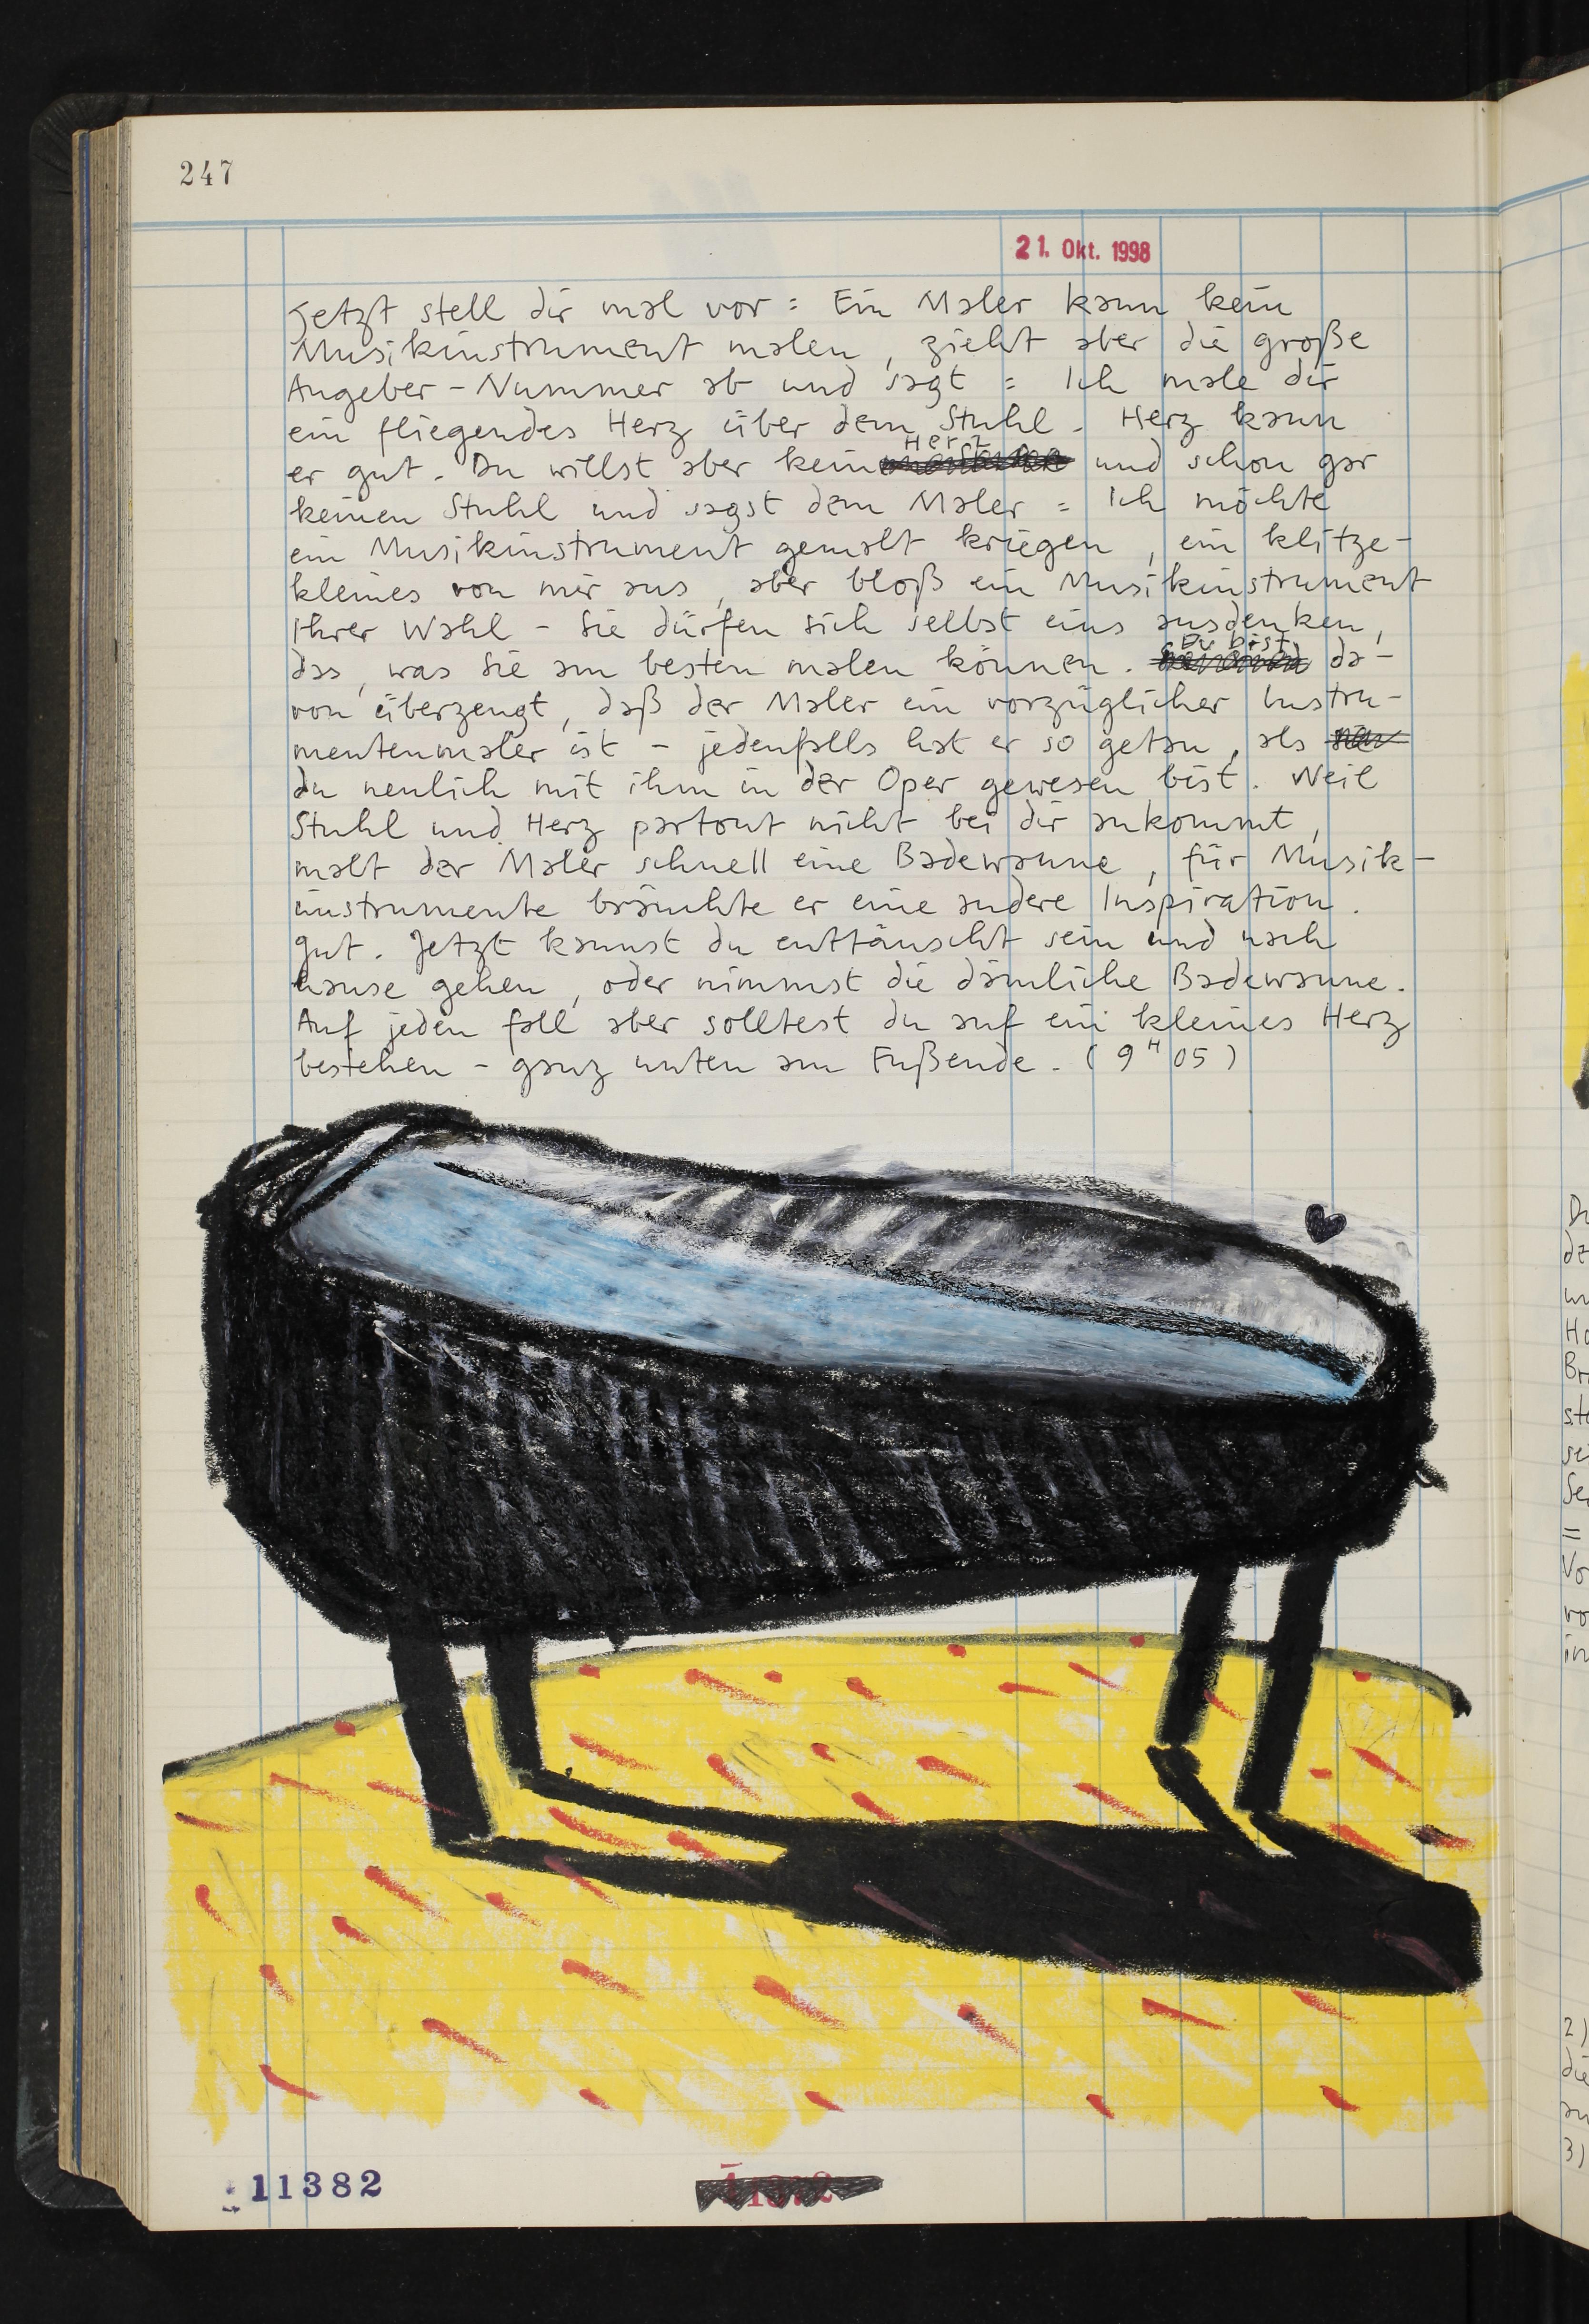 247
21. Okt. 1998
Jetzt stell dir mal vor = Ein Maler kann kein
Musikinstrument malen, zieht aber die große
Angeber-Nummer ab und sagt = Ich male dir
ein fliegendes Herz über dem Stuhl. Herz kann
er gut. Du willst aber kein Herz und schon gar
keinen Stuhl und sagst dem Maler = Ich möchte
ein Musikinstrument gemalt kriegen, ein klitze-
kleines von mir aus, aber bloß ein Musikinstrument
Ihrer Wahl - Sie dürfen sich selbst eins ausdenken,
das, was Sie am besten malen können. Du bist da-
von überzeugt, daß der Maler ein vorzüglicher Instru-
mentenmaler ist - jedenfalls hat er so getan, als
du neulich mit ihm in der Oper gewesen bist. Weil
Stuhl und Herz partout nicht bei dir ankommt,
malt der Maler schnell eine Badewanne, für Musik-
instrumente bräuchte er eine andere Inspiration.
Gut. Jetzt kannst du enttäuscht sein und nach
hause gehen, oder nimmst die dämliche Badewanne.
Auf jeden Fall aber solltest du auf ein kleines Herz
bestehen - ganz unten am Fußende. (9 H 05)
11382
2)
3)